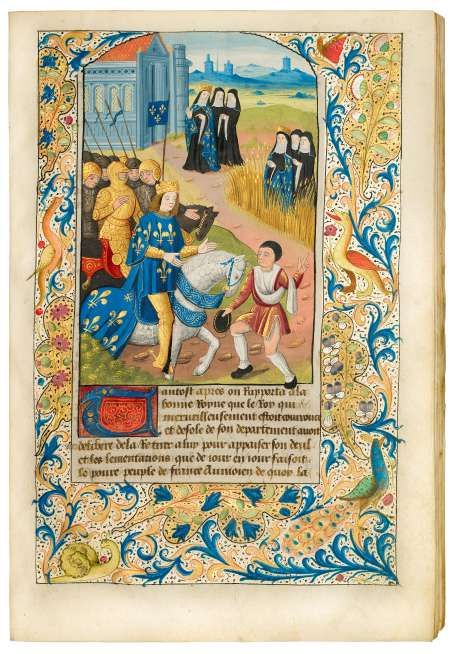 Tantost apres on Rapporta a la
bonne Royne que le Roy qui
merueilleusement estoit courouce
et desole de son departement auoit
delibere de la a luy pour appaiser son deul
et les lementations que de iour en iour faisoit
le poure peuple de france Au moien de quoy la